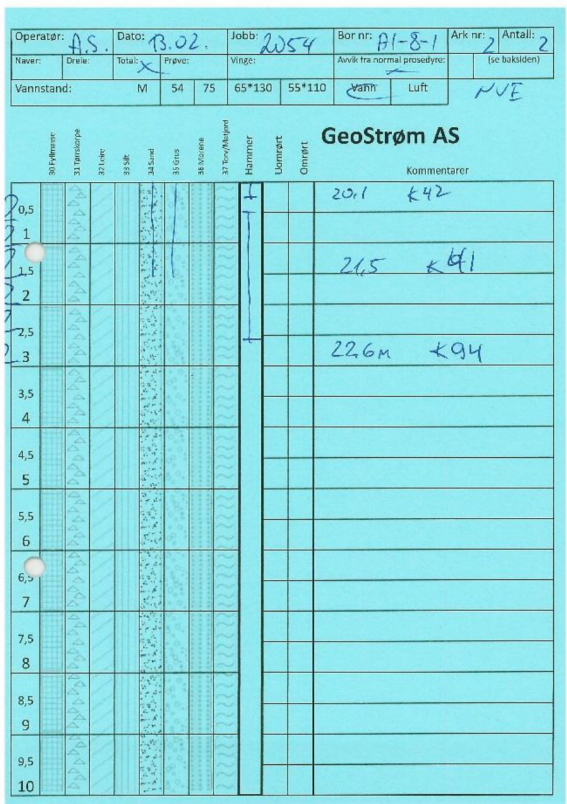 Operatør: A.S. Dato: 13.02. Jobb: 2054 Bor nr: A1-8-1 Ark nr: 2 Antall: 2
Naver: Dreie: Total: X Prøve: Vinge: Avvik fra normal prosedyre: (se baksiden)
Vannstand: M 54 75 65*130 55*110 Vann Luft NVE
30 Fyllmasse 31 Tørrskorpe 32 Leire 33 Silt 34 Sand 35 Grus 36 Morene 37 Torv/Matjord Hammer Uomrørt Omrørt
GeoStrøm AS
Kommentarer
20.1 K42
0,5
1
21,5 K
1,5
2
2,5
22,6 M K94
3
3,5
4
4,5
5
5,5
6
6,5
7
7,5
8
8,5
9
9,5
10